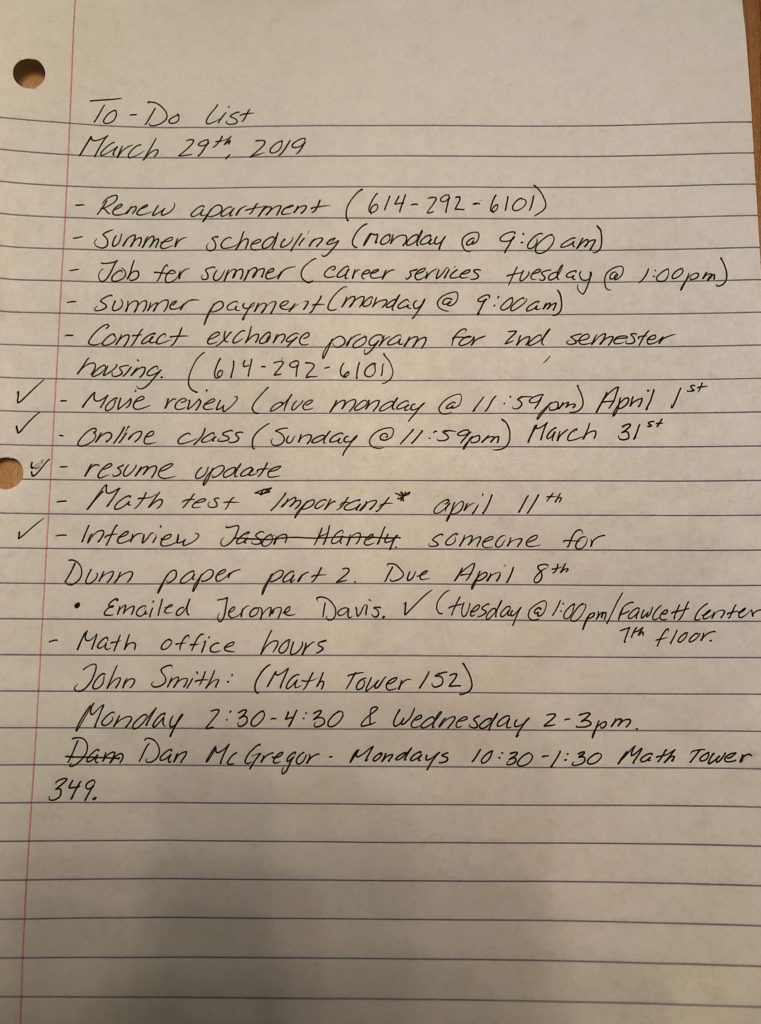 To-Do List
March 29th, 2019
- Renew apartment (614-292-6101)
- Summer scheduling (monday @ 9:00 am)
- Job for summer (career services tuesday @ 1:00pm)
- Summer payment (monday @ 9:00am)
- Contact exchange program for 2nd semester
housing. (614-292-6101)
✓ - Movie review (due monday @ 11:59pm) April 1st
✓ - Online class (Sunday @ 11:59pm) March 31st
✓ - resume update
- Math test *Important* april 11th
✓ - Interview Jason Hanely. someone for
Dunn paper part 2. Due April 8th
• Emailed Jerome Davis. ✓ (tuesday @ 1:00pm/Fawcett Center
7th floor.
- Math office hours
John Smith: (Math Tower 152)
Monday 2:30-4:30 & Wednesday 2-3pm.
Dam Dan McGregor - Mondays 10:30-1:30 Math Tower
349.